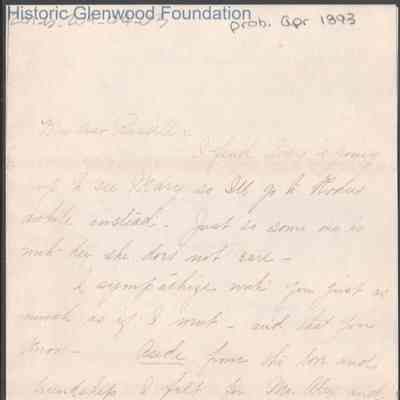 Historic Glenwood Foundation
prob. Apr 1893
My dear Russell:
I find is going
up to see Mary so I'll go to
awhile instead. Just so some one is
with her she does not care -
I sympathize with you just as
much as if I - and that you
know - Aside from the love and
friendship I felt for Mr. and